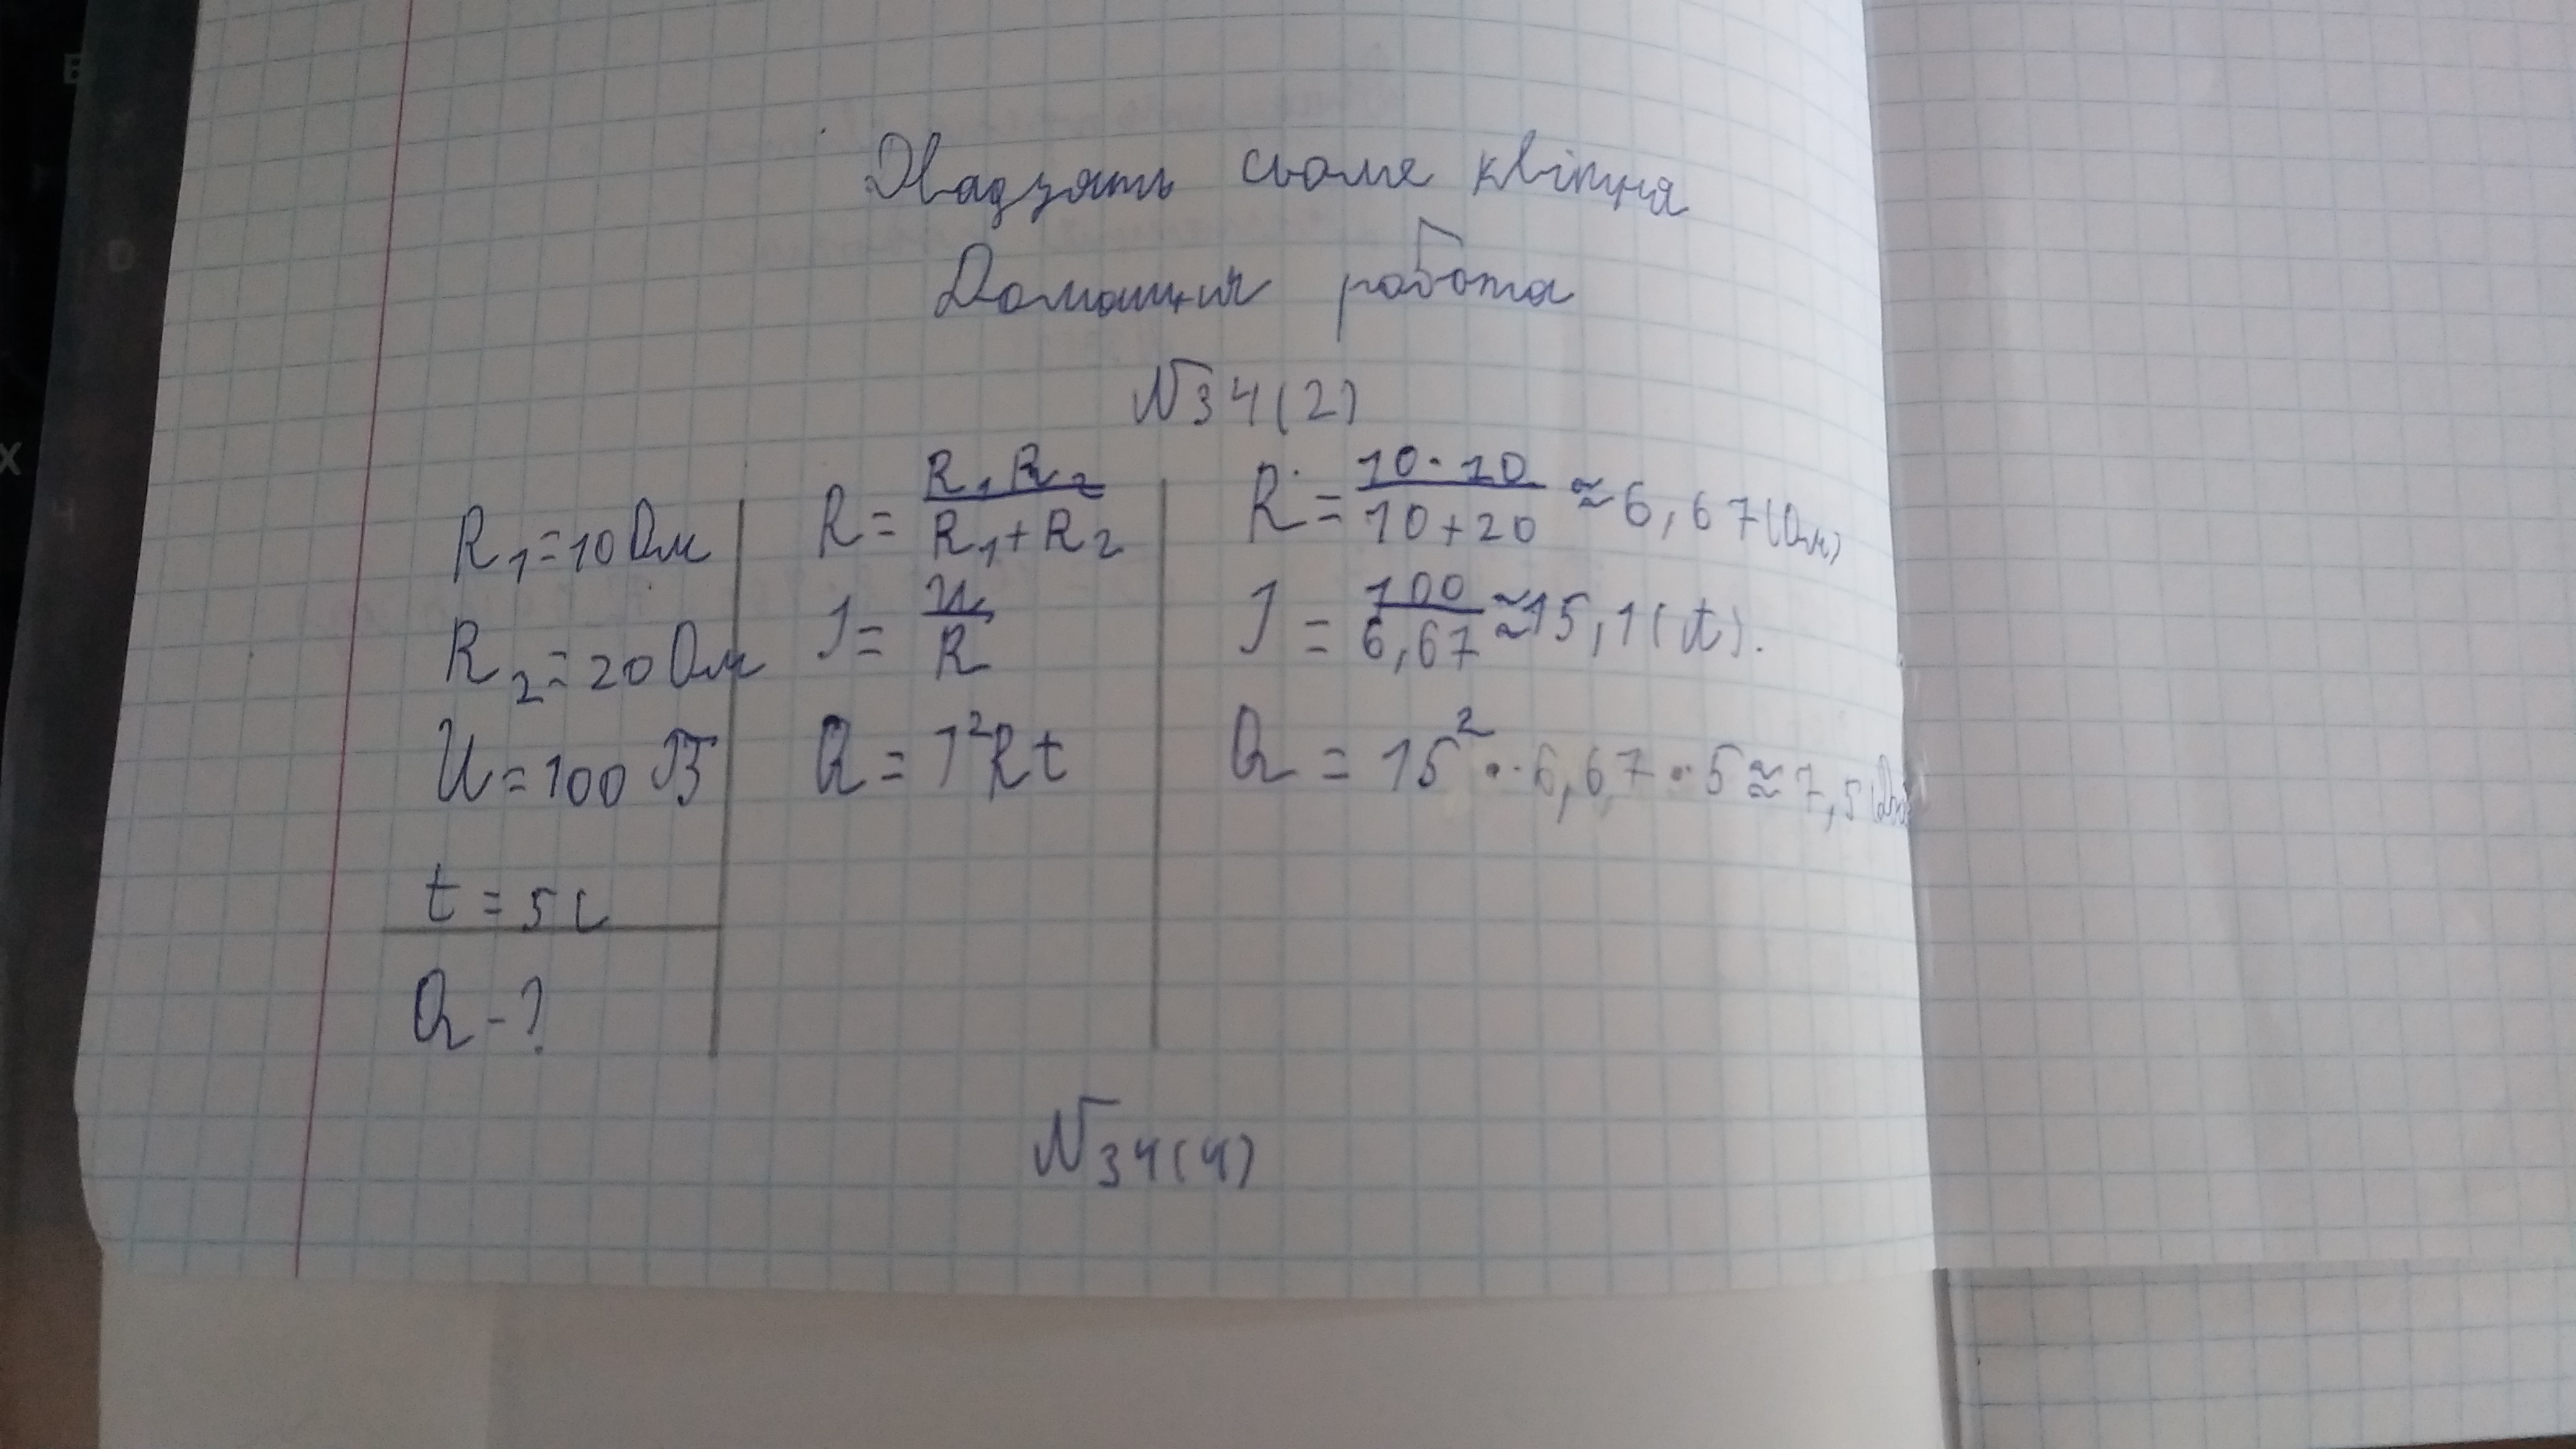 Двадцять сьоме квітня
Домашня робота
№34(2)
R₁=10 Ом
R₂=20 Ом
U=100 В
t=5 с
Q-?
R=R₁R₂/R₁+R₂
I=U/R
Q=I²Rt
R=10·10/10+20≈6,67(Ом)
I=100/6,67≈15,1(A).
Q=15²·6,67·5≈7,5(Дж
№34(4)